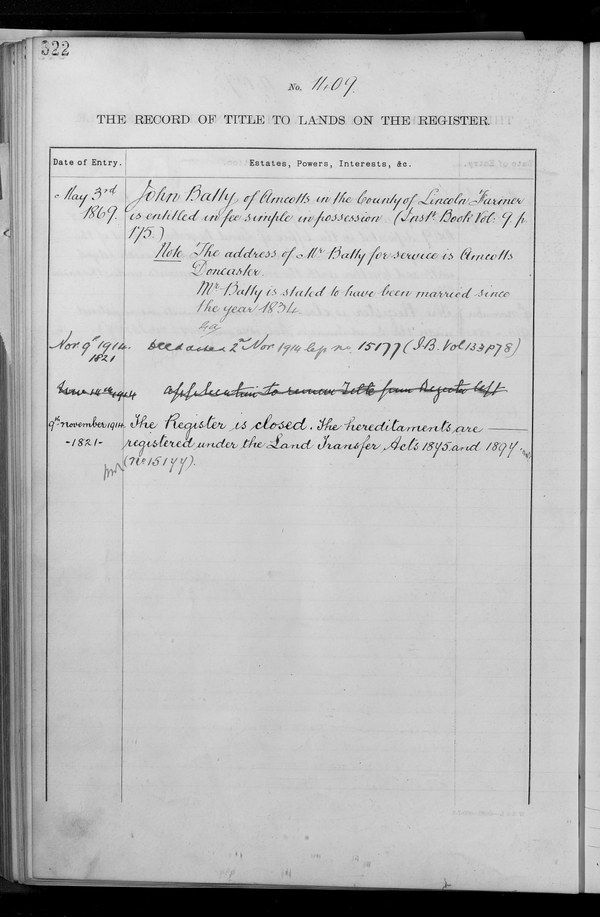 322
No. 1409.
THE RECORD OF TITLE TO LANDS ON THE REGISTER.
Date of Entry.
Estates, Powers, Interests, &c.
May 3rd
1869.
John Batty, of Amcotts in the County of Lincoln Farmer
is entitled in fee simple in possession (Instt. Book Vol. 9 p.
175.)
Note The address of Mr Batty for service is Amcotts
Doncaster.
Mr Batty is stated to have been married since
the year 1834.
Nov. 9th 1914.
1821
2nd Nov 1914 no. 15177 (I.B. Vol 133 p 78)
June 14th 1914
application to remove Title from Register left
9th november 1914.
-1821-
The Register is closed. The hereditaments are
registered under the Land Transfer Acts 1875 and 1897.
(no 15177).